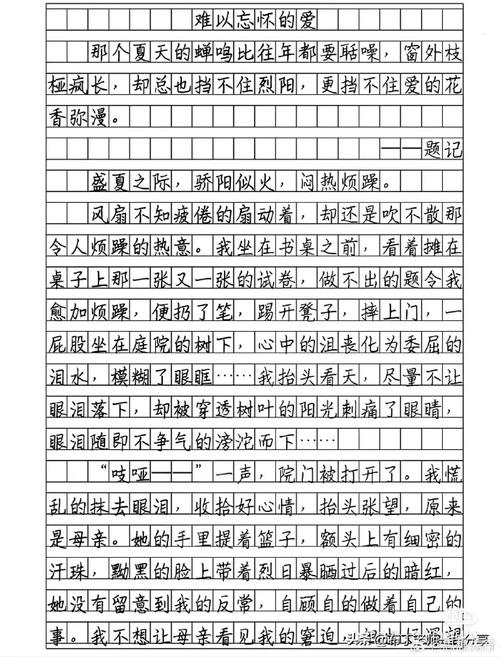 难以忘怀的爱
那个夏天的蝉鸣比往年都要聒噪，窗外枝
桠疯长，却总也挡不住烈阳，更挡不住爱的花
香弥漫。
——题记
盛夏之际，骄阳似火，闷热烦躁。
风扇不知疲倦的扇动着，却还是吹不散那
令人烦躁的热意。我坐在书桌之前，看着摊在
桌子上那一张又一张的试卷，做不出的题令我
愈加烦躁，便扔了笔，踢开凳子，摔上门，一
屁股坐在庭院的树下，心中的沮丧化为委屈的
泪水，模糊了眼眶……我抬头看天，尽量不让
眼泪落下，却被穿透树叶的阳光刺痛了眼睛，
眼泪随即不争气的滂沱而下……
“吱哑——”一声，院门被打开了。我慌
乱的抹去眼泪，收拾好心情，抬头张望，原来
是母亲。她的手里提着篮子，额头上有细密的
汗珠，黝黑的脸上带着烈日暴晒过后的暗红，
她没有留意到我的反常，自顾自的做着自己的
事。我不想让母亲看见我的窘迫，